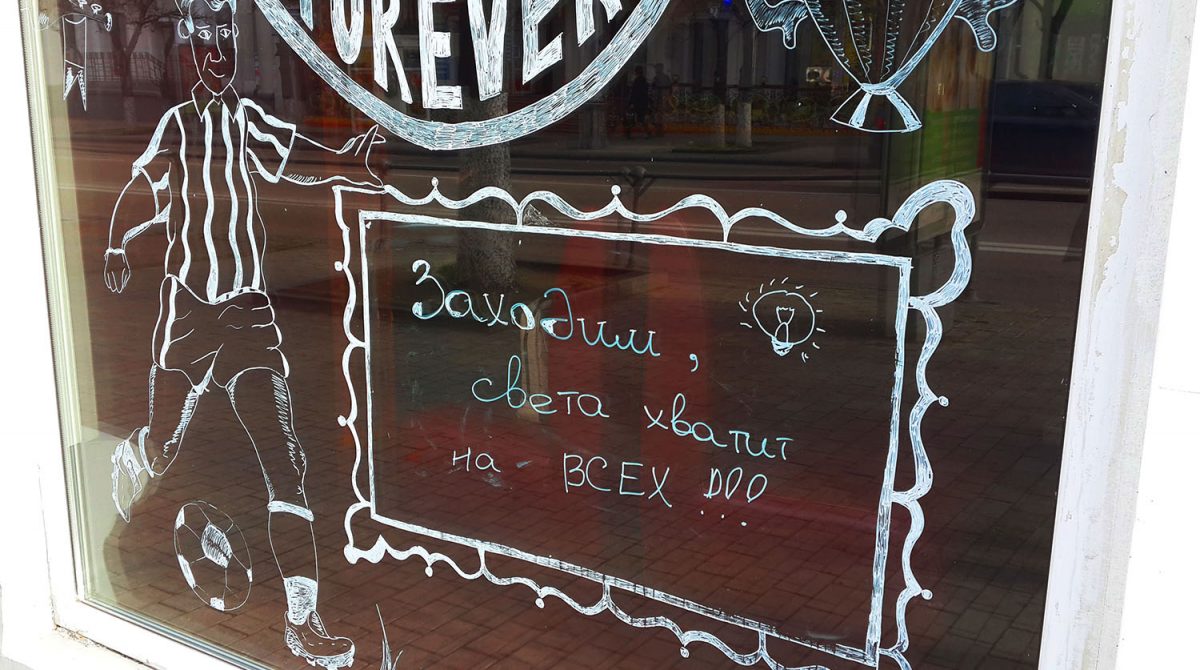 FOREVER
Заходим,
света хватит
на ВСЕХ !!!